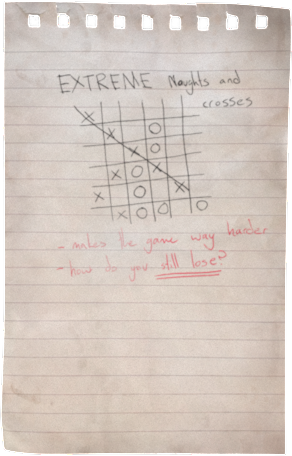 EXTREME Noughts and
crosses
X
X O
X O
X O X
X O X
X O O O
- makes the game way harder
- how do you still lose?